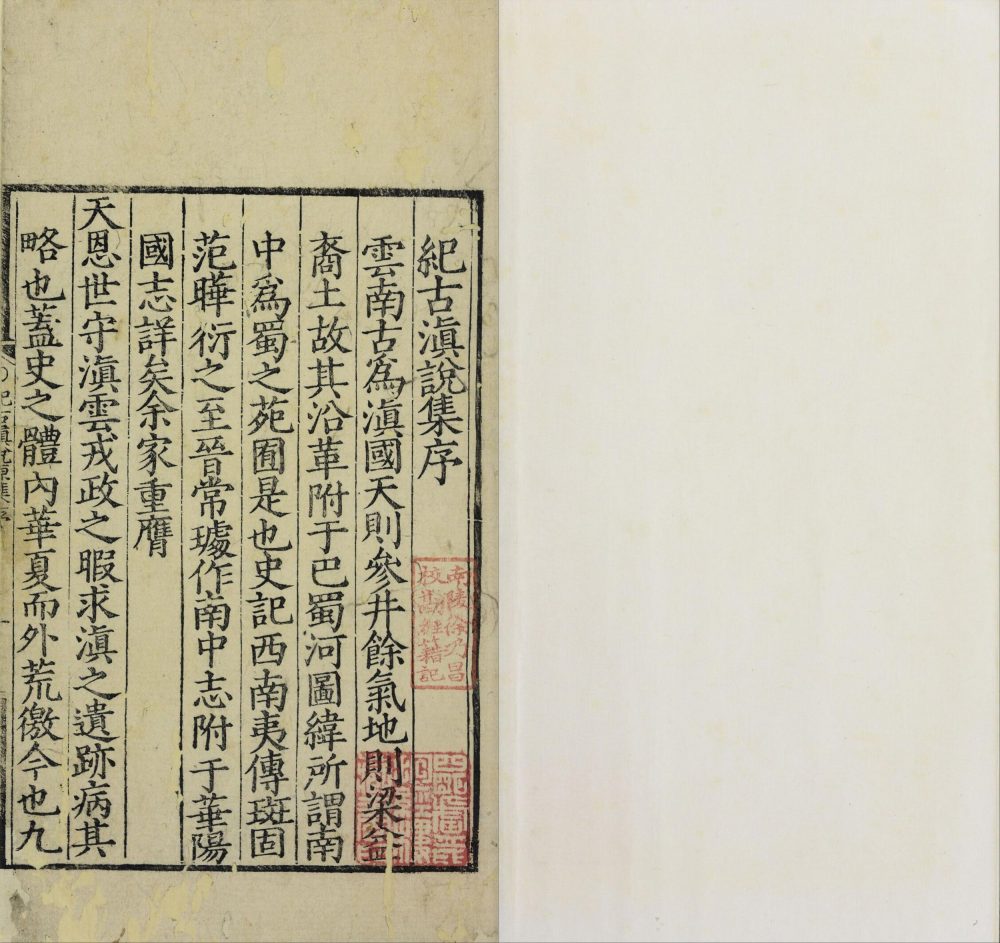 紀古滇說集序
雲南古爲滇國天則參井餘氣地則梁益
裔土故其沿革附于巴蜀河圖緯所謂南
中爲蜀之苑囿是也史記西南夷傳班固
范曄衍之至晉常璩作南中志附于華陽
國志詳矣余家重膺
天恩世守滇雲戎政之暇求滇之遺跡病其
略也蓋史之體內華夏而外荒徼今也九
南陵徐乃昌
校勘經籍記